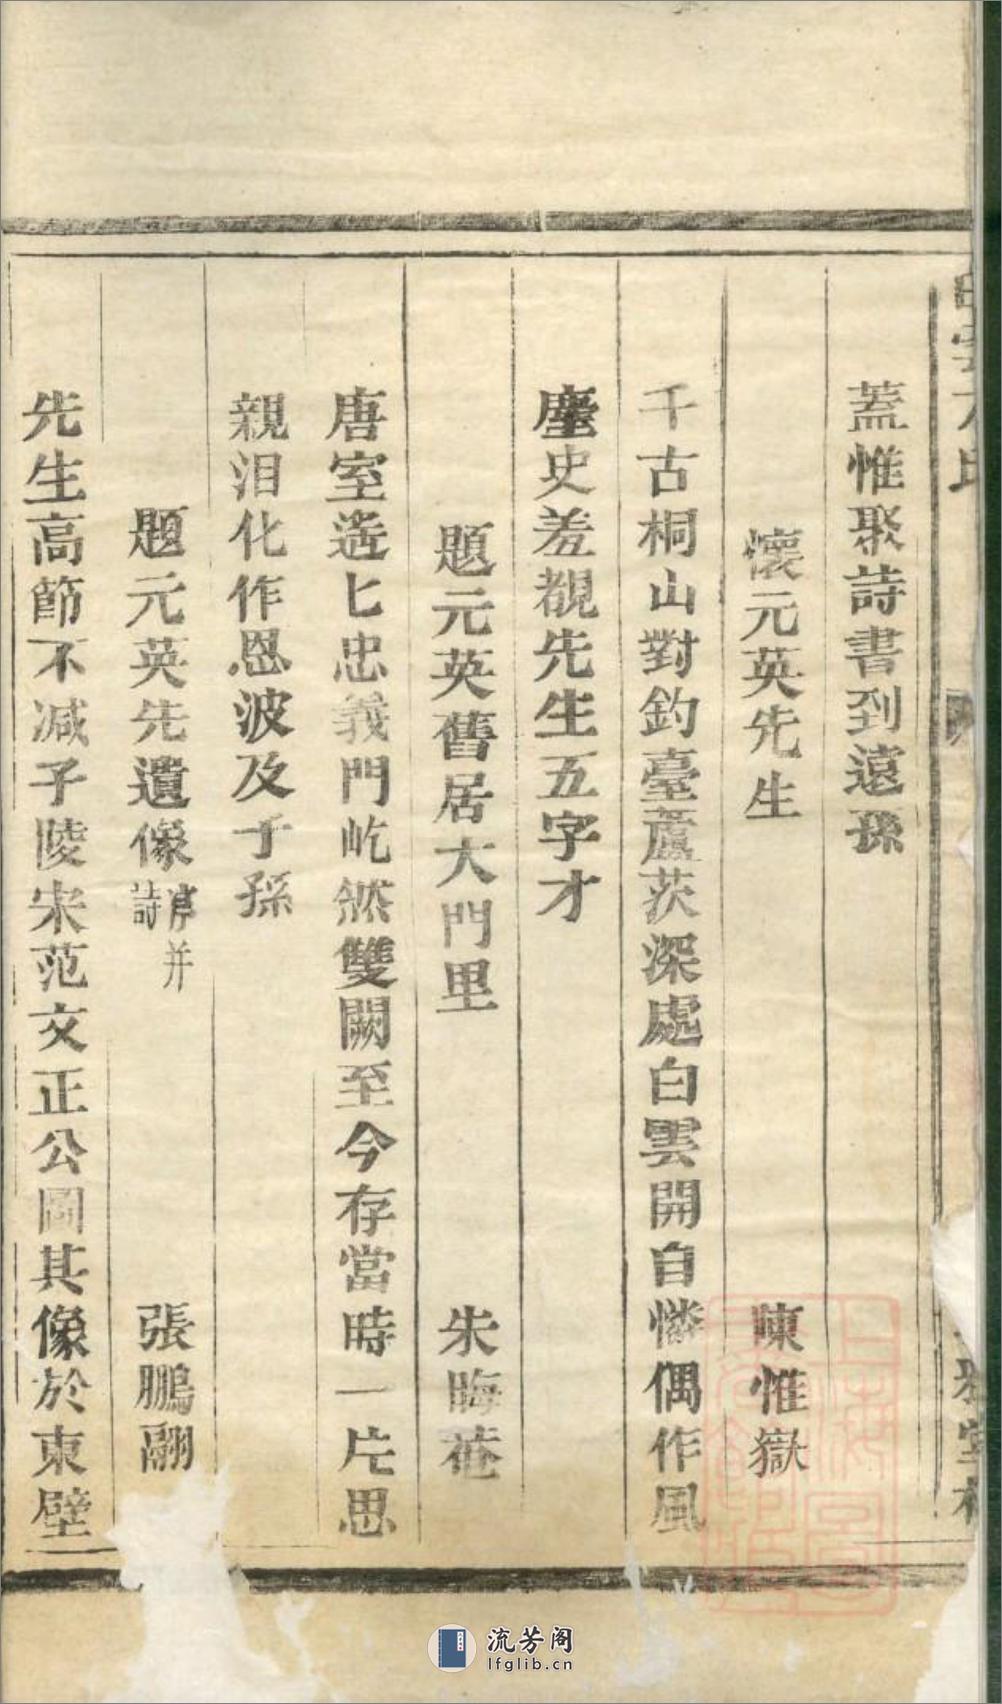 蓋惟聚詩書到遠孫
懷元英先生 陳惟嶽
千古桐山對釣臺蘆茨深處白雲開自憐偶作風
塵史羞覩先生五字才
題元英舊居大門里 朱晦菴
唐室遙亡忠義門屹然雙闕至今存當時一片思
親泪化作恩波及子孫
題元英先遺像序并詩 張鵬翮
先生高節不减子陵宋范文正公圖其像於東壁
流芳阁
lfglib.cn